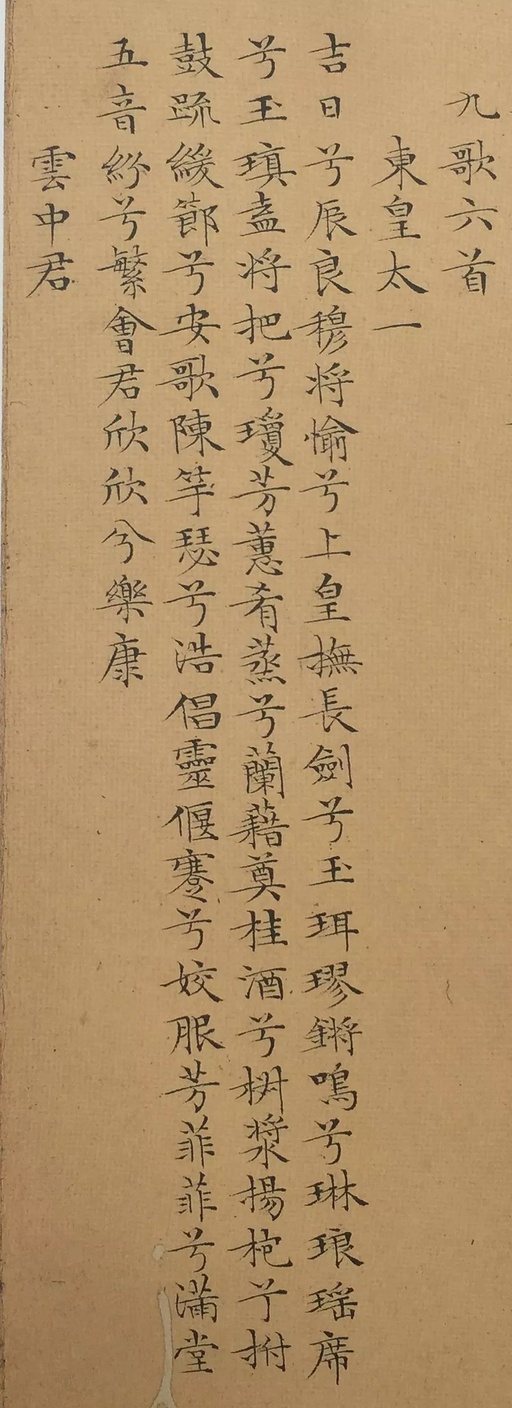 九歌六首
東皇太一
吉日兮辰良穆將愉兮上皇撫長劍兮玉珥璆鏘鳴兮琳琅瑶席
兮玉瑱盍将把兮瓊芳蕙肴蒸兮蘭藉奠桂酒兮椒漿揚枹兮拊
鼓疏緩節兮安歌陳竽瑟兮浩倡靈偃蹇兮姣服芳菲菲兮滿堂
五音紛兮繁會君欣欣兮樂康
雲中君